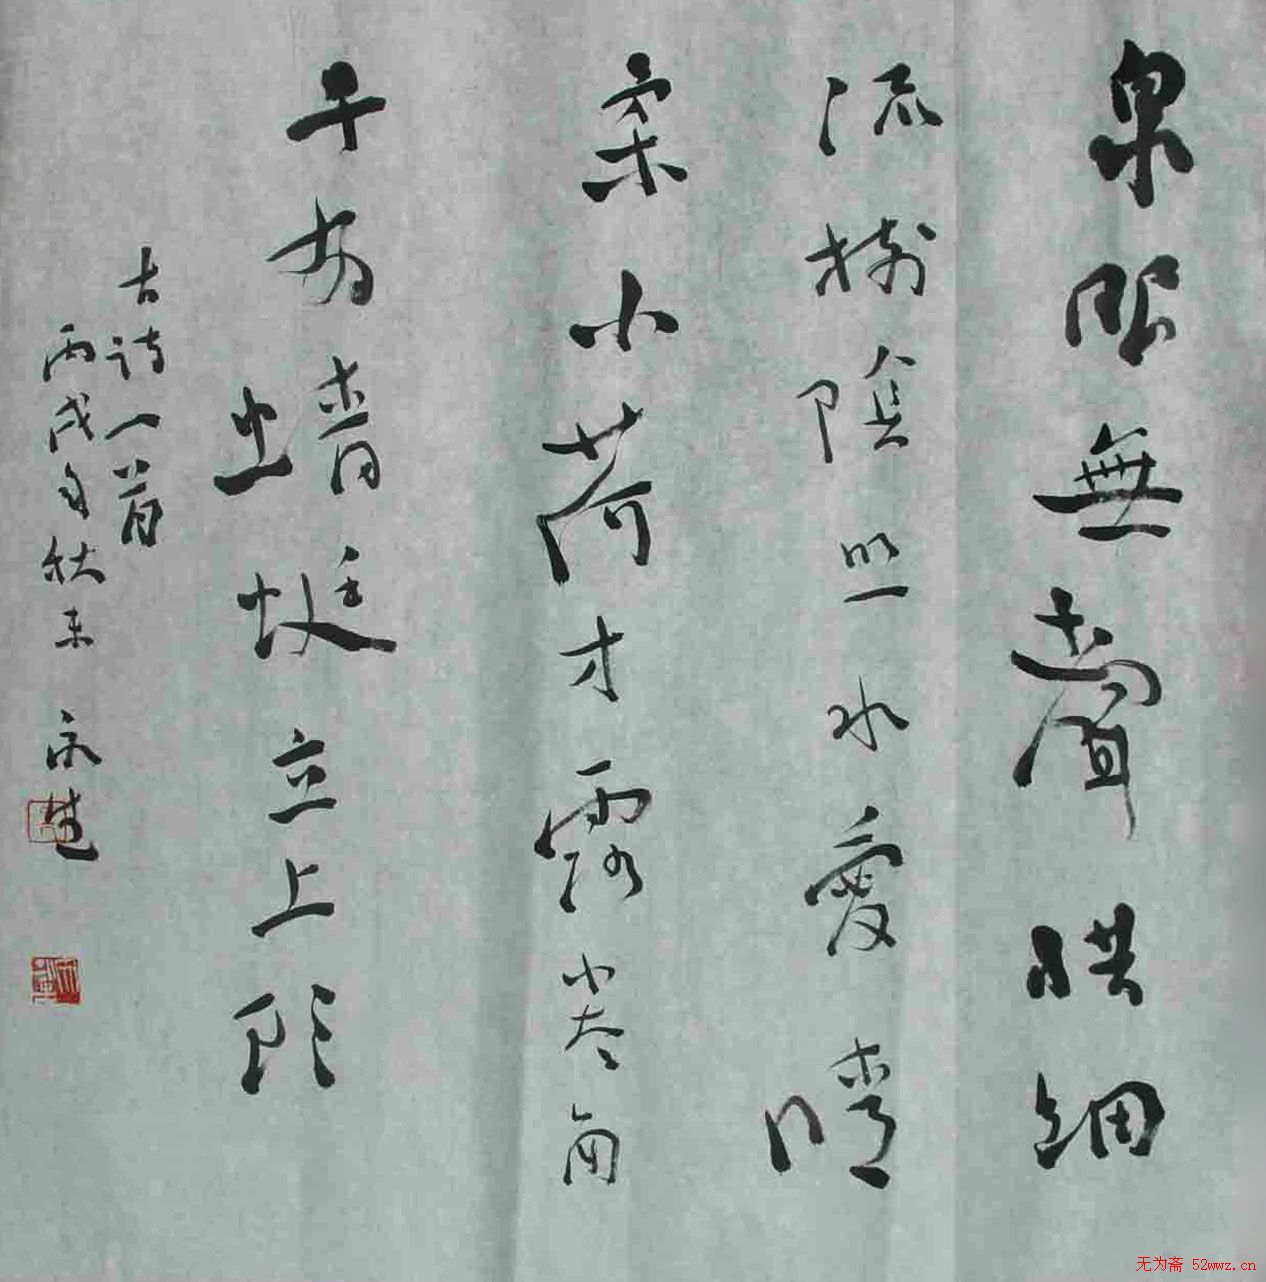 泉眼無聲惜細
流樹陰照水愛晴
柔小荷才露尖々角
早有蜻蜓立上頭
古詩一首
丙戌年秋末
无为斋 52wwz.cn